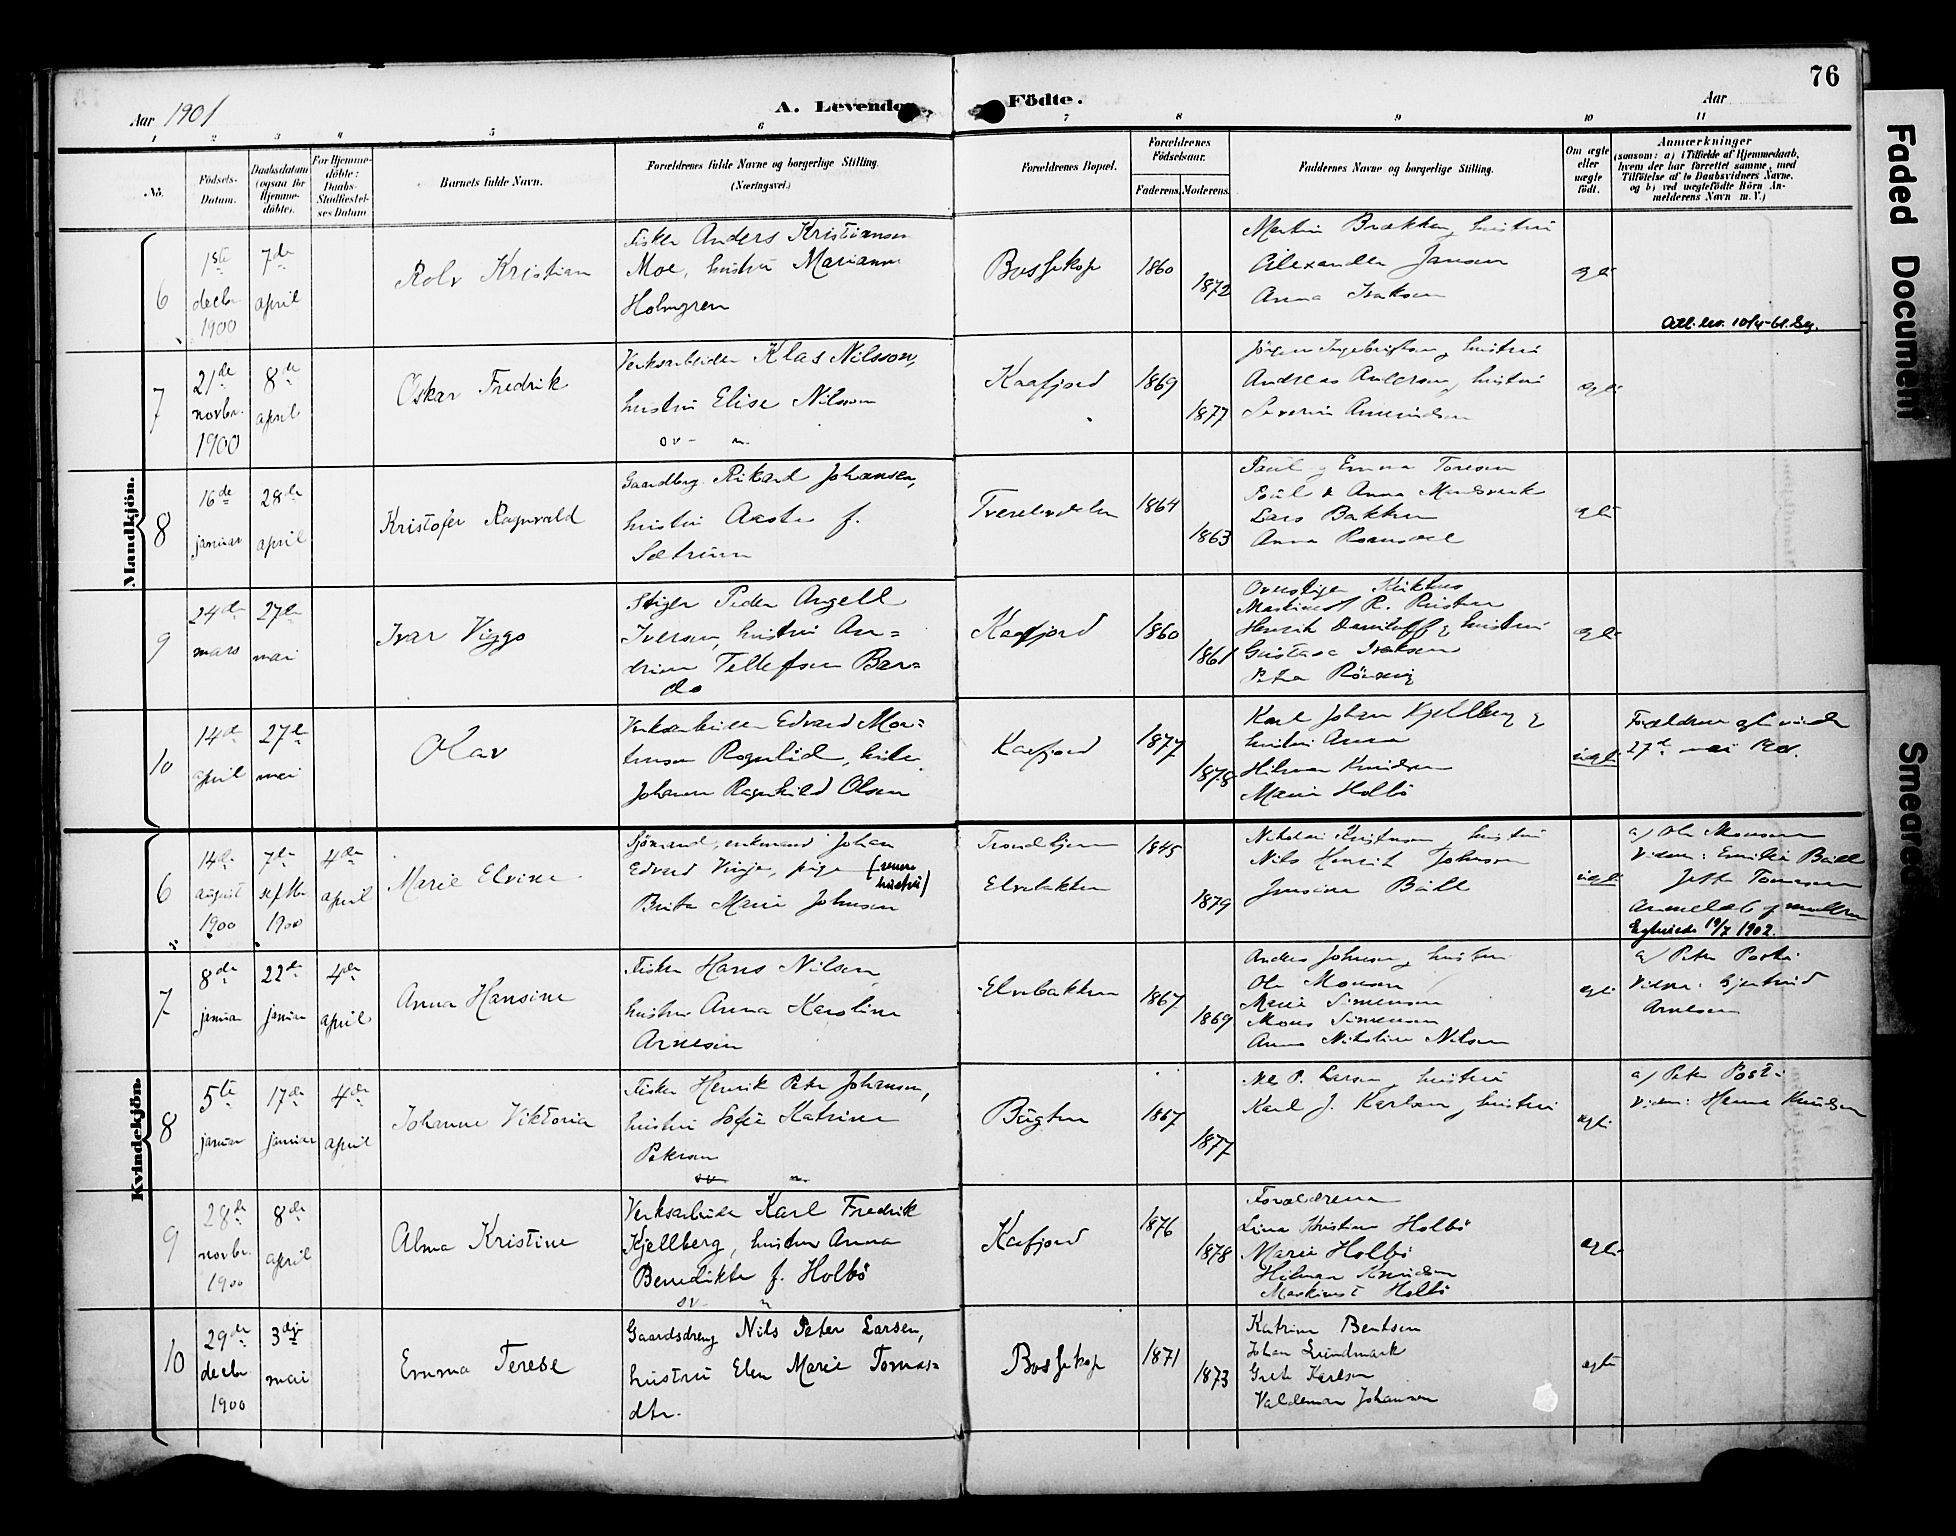 76
Aar 1901
A. Levende Födte.
Aar
1 2 3 4 5 6 7 8 9 10 11
No.
Födsels-
Datum.
Daabsdatum
(ogsaa for
Hjemme-
döbte).
For Hjemme-
döbte:
Daabs-
Stadfæstel-
ses Datum
Barnets fulde Navn.
Forældrenes fulde Navne og borgerlige Stilling.
(Næringsvei.)
Forældrenes Bopæl.
Forældrenes
Födselsaar.
Faderens. Moderens.
Faddernes Navne og borgerlige Stilling.
Om ægte
eller
uægte
födt.
Anmærkninger
(saasom: a) i Tilfælde af Hjemmedaab,
hvem der har forrettet samme, med
Tilföielse af to Daabsvidners Navne.
og b) ved uægtefödte Börn An-
melderens Navn m. V.)
Mandkjön.
6
1ste
decbr.
1900
7de
april
Rolv Kristian
Fisker Anders Kristiansen
Moe, hustru Marianne
Holmgren
Bossekop
1860
1872
Martin Brækken, hustru
Alexander Jansen
Anna Isaksen
egte
7
21de
novbr.
1900
8de
april
Oskar Fredrik
Verksarbeider Klas Nilsson,
hustru Elise Nilsson
Kaafjord
1869
1877
Jörgen Ingebrigtsen, hustru
Andreas Antonsen, hustru
Severin Amundsen
egte
8
16de
januar
28de
april
Kristofer Ragnvald
Gaardbrg. Rikard Johansen,
hustru Aasta f.
Sætrum
Tverelvdalen
1864
1863
Paul og Emma Toresen
Lars Bakken
egte
9
24de
mars
27de
mai
Ivar Viggo
Stiger Peder Angell
Iversen, hustru An=
drine Tellefsen Bar=
do
Kaafjord
1860
1861
Gustava Isaksen
egte
10
14de
april
27de
mai
Olav
Verksarbeider Edvard Mor=
tensen Rognlid,
Johanne Ragnhild Olsen
Kaafjord
1877
1878
Karl Johan Kjellberg og
hustru Anna
Hilmar Knudsen
Marie Holbö
uegte
Forældrene egteviede
27de mai 1901.
Kvindekjön.
6
14de
august
1900
7de
septbr.
1900
4de
april
Marie Elvine
Sjömand, enkemand Johan
Edvard Vinje, pige (senere
hustru)
Berit Marie Johnsen
Trondhjem
Elvebakken
1845
1879
Nikolai Kristensen, hustru
Nils Henrik Johnsen
Jensine Bull
uegte
a/ Ole Monsen
Vidner: Emilie Bull
Anmeldt af moderen
Egteviede 19/7 1902.
7
8de
januar
22de
januar
4de
april
Anna Hansine
Fisker Hans Nilsen,
hustru Anna Karoline
Arnesen
Elvebakken
1867
1869
Anders Johnsen, hustru
Ole Monsen
Marie Simensen
Mons Simensen
Anna Nikoline Nilsen
egte
a/ Peter Posti
Vidner: Gjertrud
Arnesen
8
5te
januar
17de
januar
4de
april
Johanne Viktoria
Fisker Henrik Peter Johansen,
hustru Sofie Katrine
Petersen
Bugten
1867
1877
P. Larsen, hustru
Karl J. Karlsen, hustru
egte
a/ Peter Posti
Vidner: Hanna Knudsen
9
28de
novbr.
1900
8de
april
Alma Kristine
Verksarbeider Karl Fredrik
Kjellberg, hustru Anna
Benedikte f. Holbö
Kaafjord
1876
1878
Forældrene
Lina Kristine Holbö
Marie Holbö
Hilmar Knudsen
Maskinist Holbö
egte
10
29de
decbr.
1900
3die
mai
Emma Terese
Gaardsdreng Nils Peter Larsen,
hustru Elen Marie Tomas=
dtr.
Bossekop
1871
1873
Katrine Bentsen
Johan Lundmark
Grete Karlsen
Valdemar Johansen
egte
Faded Document
Smeared